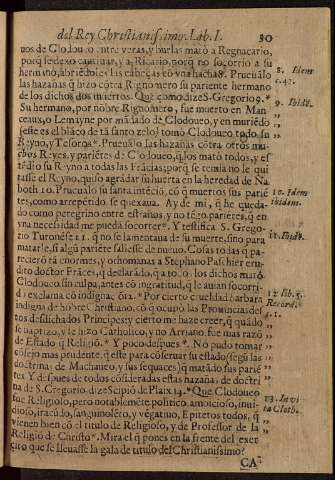 del Rey Christianissimo. Lib. I. 30
uos de Clodoueo entre veras, y burlas matò a Regnacario,
porq̃ se dexò cautiuar, y a Ricario, porq̃ no socorrio a su
hermano, abriẽdoles las cabeças cõ vna hacha8. Prueuãlo
las hazañas q̃ hizo cõtra Rignomero su pariente hermano
de los dichos dos muertos. Que como dize S. Gregorio 9.
Su hermano, por nõbre Rignomero, fue muerto en Man
ceaux, o Lemayne por mãdado de Clodoueo, y en muriẽdo
(este es el blãco de tã santo zelo) tomò Clodoueo todo su
Reyno, y Tesoros*. Prueuãlo las hazañas cõtra otros mu-
chos Reyes, y pariẽtes de Clodoueo, q̃ los matò todos, y es
tẽdio su Reyno a todas las Frãcias; porq̃ se temia no le qui
tasse el Reyno, quiẽ agradar su huerta en la heredad de Na
both 10. Prueuãlo su santa intẽciõ, cõ q̃ muertos sus pariẽ
tes, como arrepẽtido se quexaua. Ay de mi, q̃ he queda-
do como peregrino entre estraños, y no tẽgo pariẽtes, q̃ en
vna necessidad me pueda socorrer*. Y testifica S. Grego-
rio Turonẽse 11. q̃ no se lamentaua de su muerte, sino para
matarle, si algũ pariẽte saliesse de nueuo. Cosas todas q̃ pa-
recierõ tã enormes, y othomanas a Stephano Paschier eru-
dito doctor Frãces, q̃ declarãdo, q̃ a todos los dichos matò
Clodoueo sin culpa, antes cõ ingratitud, q̃ le auian socorri-
do exclama cõ indignaciõ 12. * Por cierto crueldad barbara
indigna de hõbre Christiano, cõ q̃ ocupò las Prouincias des
tos desdichados Principes: y cierto me haze creer, q̃ quãdo
se baptizò, y se hizo Catholico, y no Arriano, fue mas razõ
de Estado q̃ Religiõ. * Y poco despues*. No pudo tomar
cõsejo mas prudente, q̃ este para cõseruar su estado, segũ las
doctrinas de Machaueo, y sus sequaces; q̃ matãdo sus pariẽ
tes. Y despues de todos cõsideradas estas hazañas, de doctri
na de S. Gregorio, dize Scipiõ de Plaix 13. * Que Clodoueo
fue Religioso, pero notablemẽte politico, ambicioso, inui-
dioso, iracũdo, sanguinolẽto, y vẽgatiuo, Epitetos todos, q̃
vienen bien cõ el titulo de Religioso, y de Professor de la
Religiõ de Christo*. Mira el q̃ pones en la frente del exer
cito que se lleuasse la gala de titulo del Christianissimo?
CA-
8. Idem
c. 42.
9. Ibidẽ.
10. Idem
ibidem.
11. Ibidẽ.
12 lib. 5.
Record.
c. 1.
13. In vi
ta Cloth.